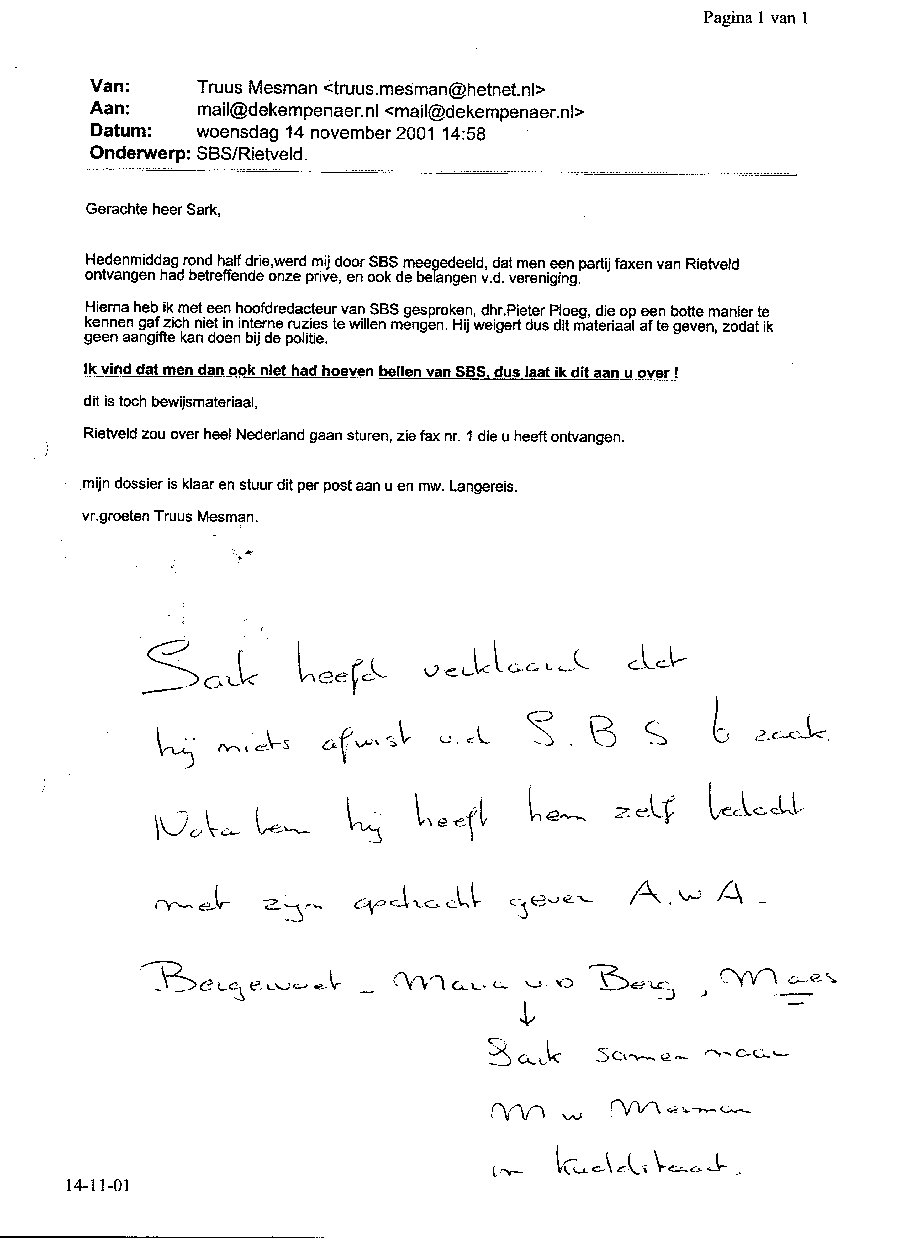 Pagina 1 van 1
Van: Truus Mesman <truus.mesman@hetnet.nl>
Aan: mail@dekempenaer.nl <mail@dekempenaer.nl>
Datum: woensdag 14 november 2001 14:58
Onderwerp: SBS/Rietveld.
Gerachte heer Sark,
Hedenmiddag rond half drie,werd mij door SBS meegedeeld, dat men een partij faxen van Rietveld
ontvangen had betreffende onze prive, en ook de belangen v.d. vereniging.
Hierna heb ik met een hoofdredacteur van SBS gesproken, dhr.Pieter Ploeg, die op een botte manier te
kennen gaf zich niet in interne ruzies te willen mengen. Hij weigert dus dit materiaal af te geven, zodat ik
geen aangifte kan doen bij de politie.
Ik vind dat men dan ook niet had hoeven bellen van SBS, dus laat ik dit aan u over !
dit is toch bewijsmateriaal,
Rietveld zou over heel Nederland gaan sturen, zie fax nr. 1 die u heeft ontvangen.
mijn dossier is klaar en stuur dit per post aan u en mw. Langereis.
vr.groeten Truus Mesman.
Sark heefd verklaard dat
hij niets afwist v.d S.B S 6 zaak.
Nota ben hij heeft hem zelf bedacht
met zijn opdracht gever A.w A -
Bergewoet - Maria v.D Berg, Maes
↓
Sark samen naar
M w Mesman
in
14-11-01